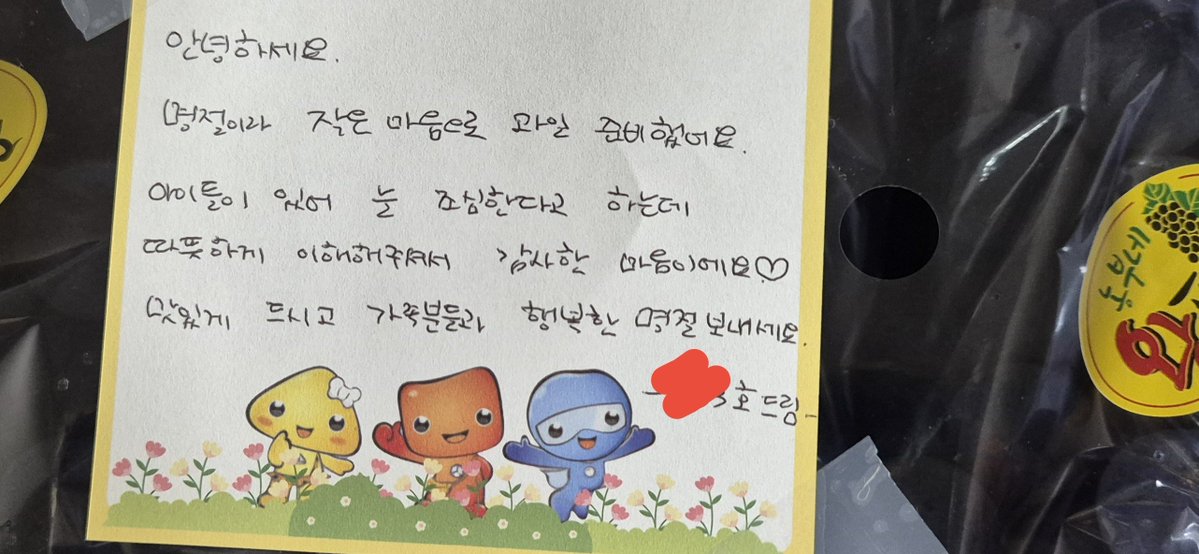 안녕하세요.
명절이라 작은 마음으로 과일 준비했어요.
아이들이 있어 늘 조심한다고 하는데
따뜻하게 이해해주셔서 감사한 마음이에요♡
맛있게 드시고 가족분들과 행복한 명절 보내세요.
호 드림-
흥부네